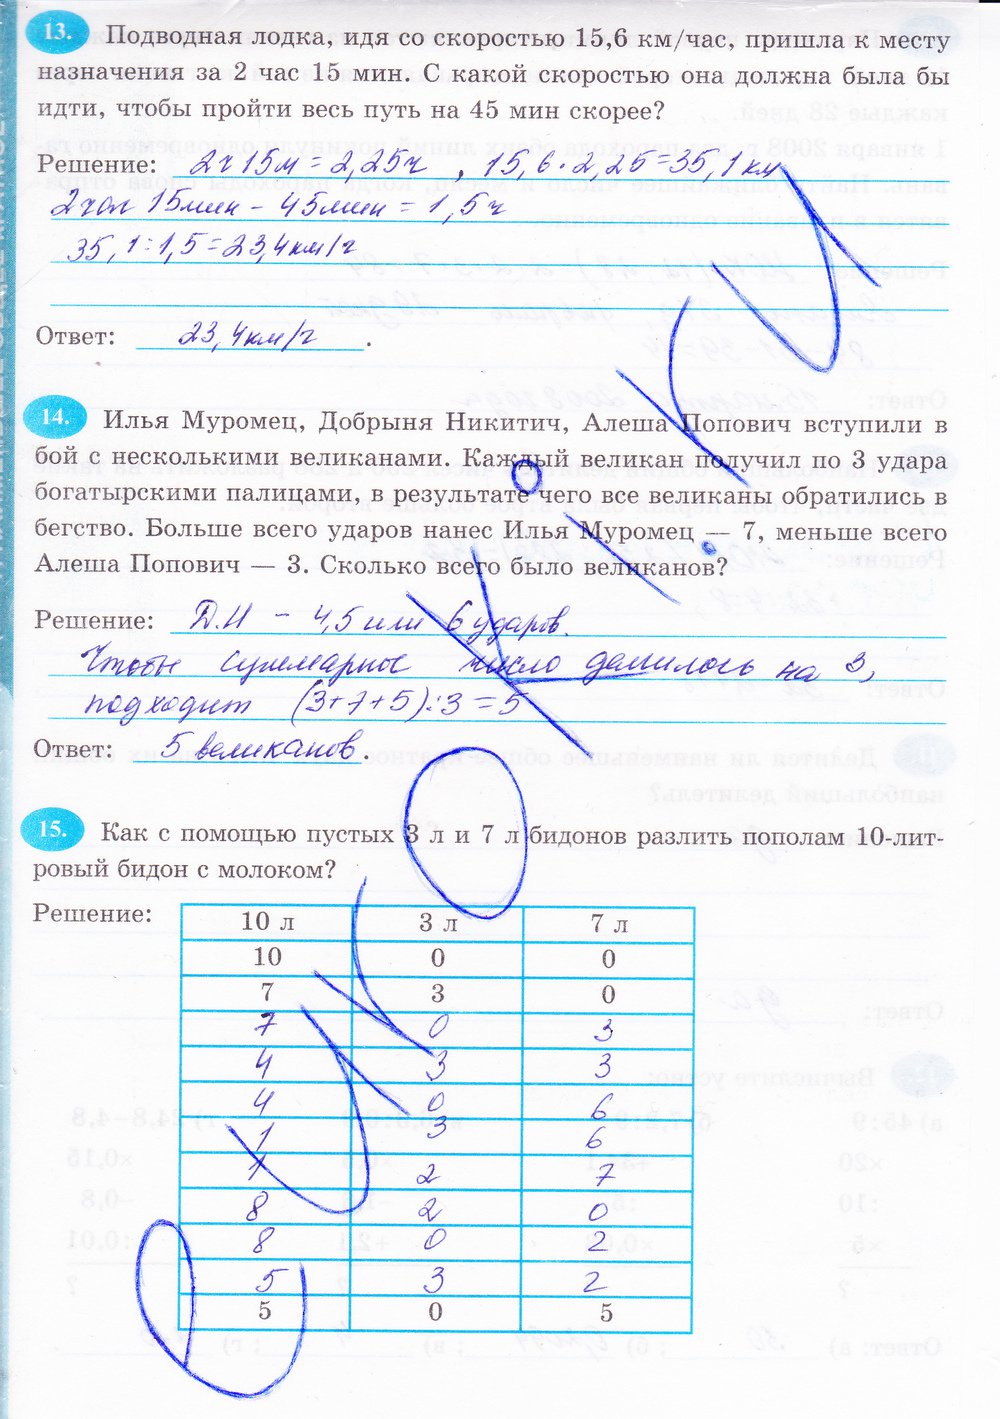 13. Подводная лодка, идя со скоростью 15,6 км/час, пришла к месту
назначения за 2 час 15 мин. С какой скоростью она должна была бы
идти, чтобы пройти весь путь на 45 мин скорее?
Решение: 2ч 15м = 2,25ч , 15,6 · 2,25 = 35,1 км
2час 15мин - 45мин = 1,5ч
35,1 : 1,5 = 23,4 км/г
Ответ: 23,4 км/г .
14. Илья Муромец, Добрыня Никитич, Алеша Попович вступили в
бой с несколькими великанами. Каждый великан получил по 3 удара
богатырскими палицами, в результате чего все великаны обратились в
бегство. Больше всего ударов нанес Илья Муромец — 7, меньше всего
Алеша Попович — 3. Сколько всего было великанов?
Решение: Д.Н - 4,5 или 6 ударов.
Чтобы суммарное число делилось на 3,
подходит (3+7+5):3 = 5
Ответ: 5 великанов .
15. Как с помощью пустых 3 л и 7 л бидонов разлить пополам 10-лит-
ровый бидон с молоком?
Решение:
10 л 3 л 7 л
10 0 0
7 3 0
7 0 3
4 3 3
4 0 6
1 3 6
1 2 7
8 2 0
8 0 2
5 3 2
5 0 5